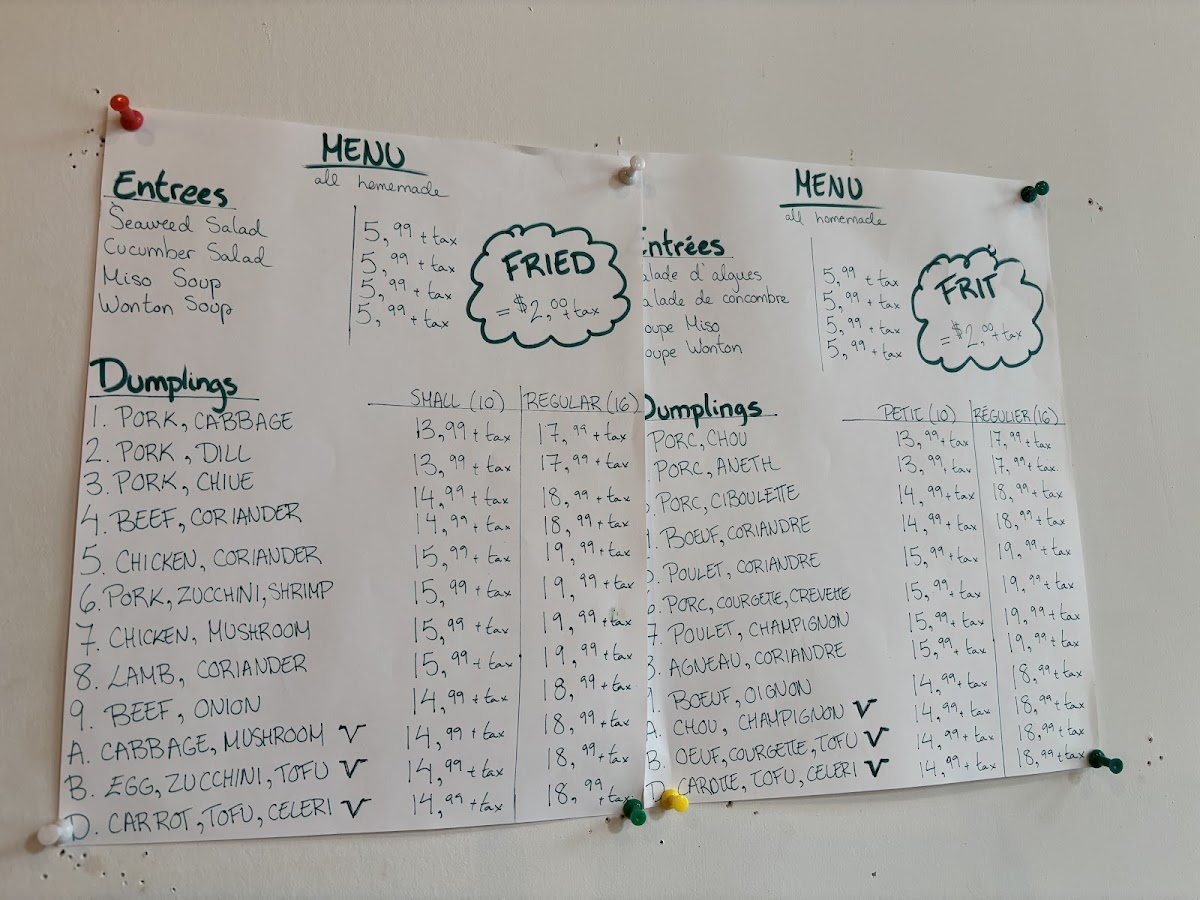 MENU
all homemade
Entrees
Seaweed Salad 5,99 + tax
Cucumber Salad 5,99 + tax
Miso Soup 5,99 + tax
Wonton Soup 5,99 + tax
FRIED
= $2,00 + tax
Dumplings SMALL (10) REGULAR (16)
1. PORK, CABBAGE 13,99 + tax 17,99 + tax
2. PORK, DILL 13,99 + tax 17,99 + tax
3. PORK, CHIVE 14,99 + tax 18,99 + tax
4. BEEF, CORIANDER 14,99 + tax 18,99 + tax
5. CHICKEN, CORIANDER 15,99 + tax 19,99 + tax
6. PORK, ZUCCHINI, SHRIMP 15,99 + tax 19,99 + tax
7. CHICKEN, MUSHROOM 15,99 + tax 19,99 + tax
8. LAMB, CORIANDER 15,99 + tax 19,99 + tax
9. BEEF, ONION 14,99 + tax 18,99 + tax
A. CABBAGE, MUSHROOM V 14,99 + tax 18,99 + tax
B. EGG, ZUCCHINI, TOFU V 14,99 + tax 18,99 + tax
D. CARROT, TOFU, CELERI V 14,99 + tax 18,99 + tax
MENU
all homemade
Entrées
alade d'algues 5,99 + tax
alade de concombre 5,99 + tax
oupe Miso 5,99 + tax
oupe Wonton 5,99 + tax
FRIT
= $2,00 + tax
Dumplings PETIT (10) RÉGULIER (16)
PORC, CHOU 13,99 + tax 17,99 + tax
PORC, ANETH 13,99 + tax 17,99 + tax.
PORC, CIBOULETTE 14,99 + tax 18,99 + tax
BOEUF, CORIANDRE 14,99 + tax 18,99 + tax
POULET, CORIANDRE 15,99 + tax 19,99 + tax
PORC, COURGETTE, CREVETTE 15,99 + tax 19,99 + tax
7. POULET, CHAMPIGNON 15,99 + tax 19,99 + tax
AGNEAU, CORIANDRE 15,99 + tax 19,99 + tax
BOEUF, OIGNON 14,99 + tax 18,99 + tax
A. CHOU, CHAMPIGNON V 14,99 + tax 18,99 + tax
B. OEUF, COURGETTE, TOFU V 14,99 + tax 18,99 + tax
D. CAROTTE, TOFU, CELERI V 14,99 + tax 18,99 + tax